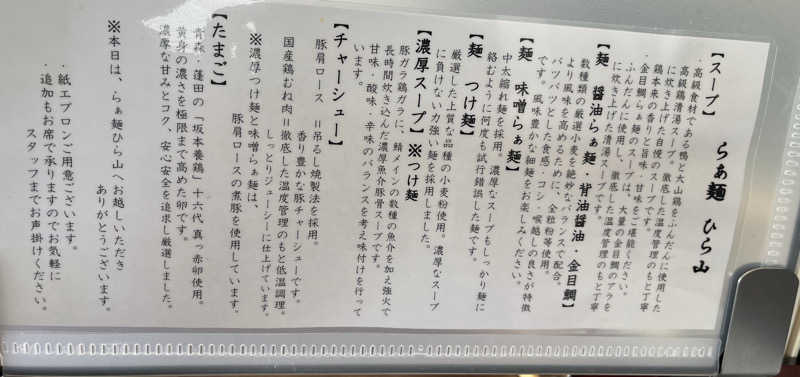 らぁ麺 ひら山
【スープ】
・高級食材である鴨と大山鶏をふんだんに使用した
高級鶏清湯スープ。徹底した温度管理のもと丁寧
に炊き上げた自慢のスープです。
鶏本来の香りと旨味・甘味をご堪能ください。
・金目鯛らぁ麺のスープは、大量の金目鯛のアラを
ふんだんに使用し、徹底した温度管理のもと丁寧
に炊き上げた清湯スープです。
【麺 醤油らぁ麺・背油醤油・金目鯛】
数種類の厳選小麦を絶妙なバランスで配合。
より風味を高めるために、全粒粉等使用。
パツパツとした食感・コシ・喉越しの良さが特徴
です。風味豊かな細麺をお楽しみください。
【麺 味噌らぁ麺】
中太縮れ麺を採用。濃厚なスープもしっかり麺に
絡むように何度も試行錯誤した麺です。
【麺 つけ麺】
厳選した上質な品種の小麦粉使用。濃厚なスープ
に負けない力強い麺を採用しました。
【濃厚スープ】※つけ麺
豚ガラ鶏ガラに、鯖メインの数種の魚介を加え強火で
長時間炊き込んだ濃厚魚介豚骨スープです。
甘味・酸味・辛味のバランスを考え味付けを行って
います。
【チャーシュー】
豚肩ロース =吊るし焼製法を採用。
香り豊かな豚チャーシューです。
国産鶏むね肉=徹底した温度管理のもと低温調理。
しっとりジューシーに仕上げています。
※濃厚つけ麺と味噌らぁ麺は、
豚肩ロースの煮豚を使用しています。
【たまご】
青森・蓬田の「坂本養鶏」十六代 真っ赤卵使用。
黄身の濃さを極限まで高めた卵です。
濃厚な甘みとコク、安心安全を追求し厳選しました。
※本日は、らぁ麺ひら山へお越しいただき
ありがとうございます。
・紙エプロンご用意ございます。
・追加もお席で承りますのでお気軽に
スタッフまでお声掛けください。